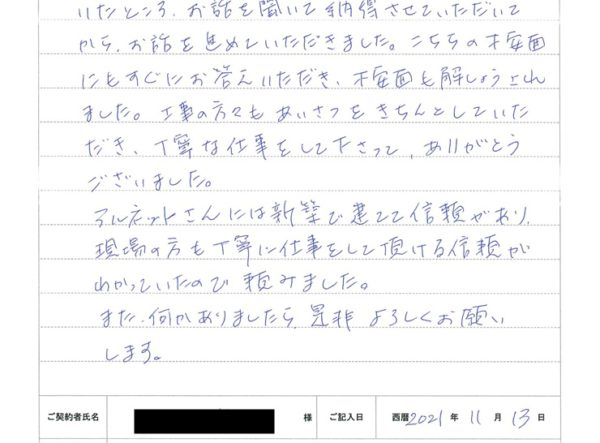 いたところ、お話を聞いて納得させていただいて
から、お話を進めていただきました。こちらの不安面
にもすぐにお答えいただき、不安面も解しょうされ
ました。工事の方々もあいさつをきちんとしていた
だき、丁寧な仕事をして下さって、ありがとう
ございました。
アルネットさんには新築で建てて信頼があり、
現場の方も丁寧に仕事をして頂ける信頼が
わかっていたので頼みました。
また、何かありましたら、是非よろしくお願い
します。
ご契約者氏名 様 ご記入日 西暦 2021 年 11 月 13 日